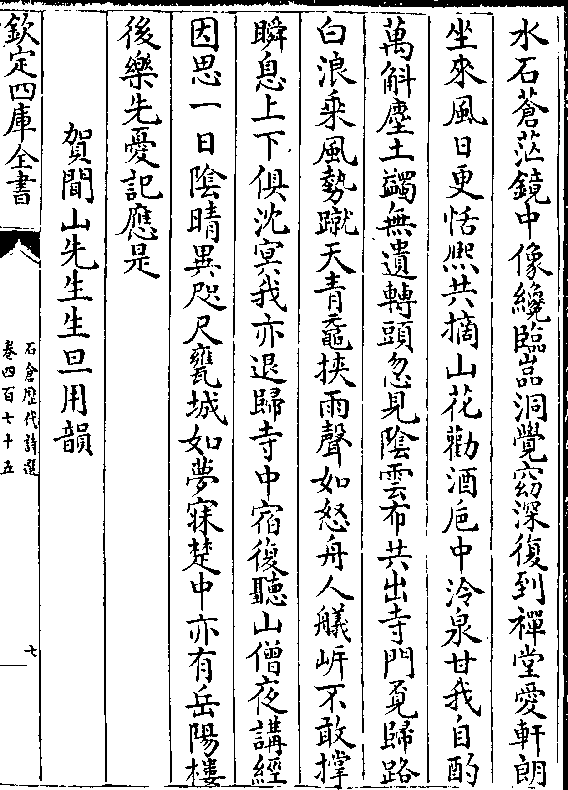 水石蒼茫鏡中像纔臨嵓洞覺窈深復到禪堂愛軒朗
坐來風日更恬熈共摘山花勸酒巵中泠泉甘我自酌
萬斛塵土蠲無遺轉頭忽見陰雲布共出寺門覔歸路
白浪乘風勢蹴天青黿挾雨聲如怒舟人艤㟁不敢撐
瞬息上下俱沈冥我亦退歸寺中宿復聽山僧夜講經
因思一日陰晴異咫尺甕城如夢寐楚中亦有岳陽樓
後樂先憂記應是
賀閒山先生生旦用韻
欽定四庫全書
石倉歴代詩選
卷四百七十五
七